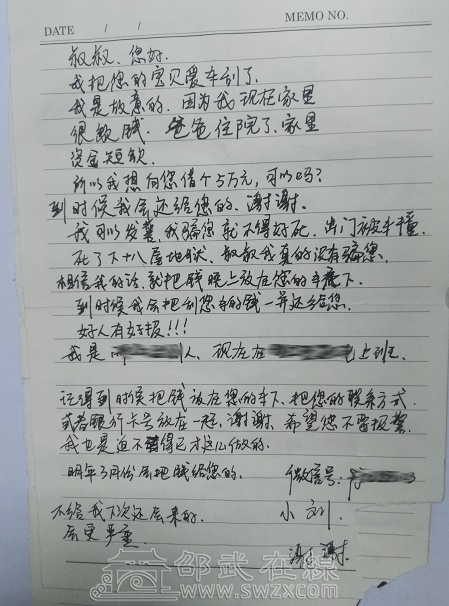 DATE / / MEMO NO.
叔叔,您好.
我把您的宝贝爱车刮了.
我是故意的.因为我现在家里
很缺钱.爸爸住院了.家里
资金短缺
所以我想向您借个5万元,可以吗?
到时候我会还给您的.谢谢.
我可以发誓,我骗您就不得好死.出门被车撞.
死了下十八层地狱.叔叔我真的没有骗您.
相信我的话.就把钱晚上放在您的车底下.
到时候我会把刮您车的钱一并还给您.
好人有好报!!!
我是 人,现在在 上班.
记得到时候把钱放在您的车下、把您的联系方式
或者银行卡号放在一起,谢谢.希望您不要报警.
我也是迫不得已才这么做的.
明年3月份会把钱给您的.
微信号:
不给我下次还会来的.
会更严重
小刘.
谢谢
邵武在線
www.swzx.com